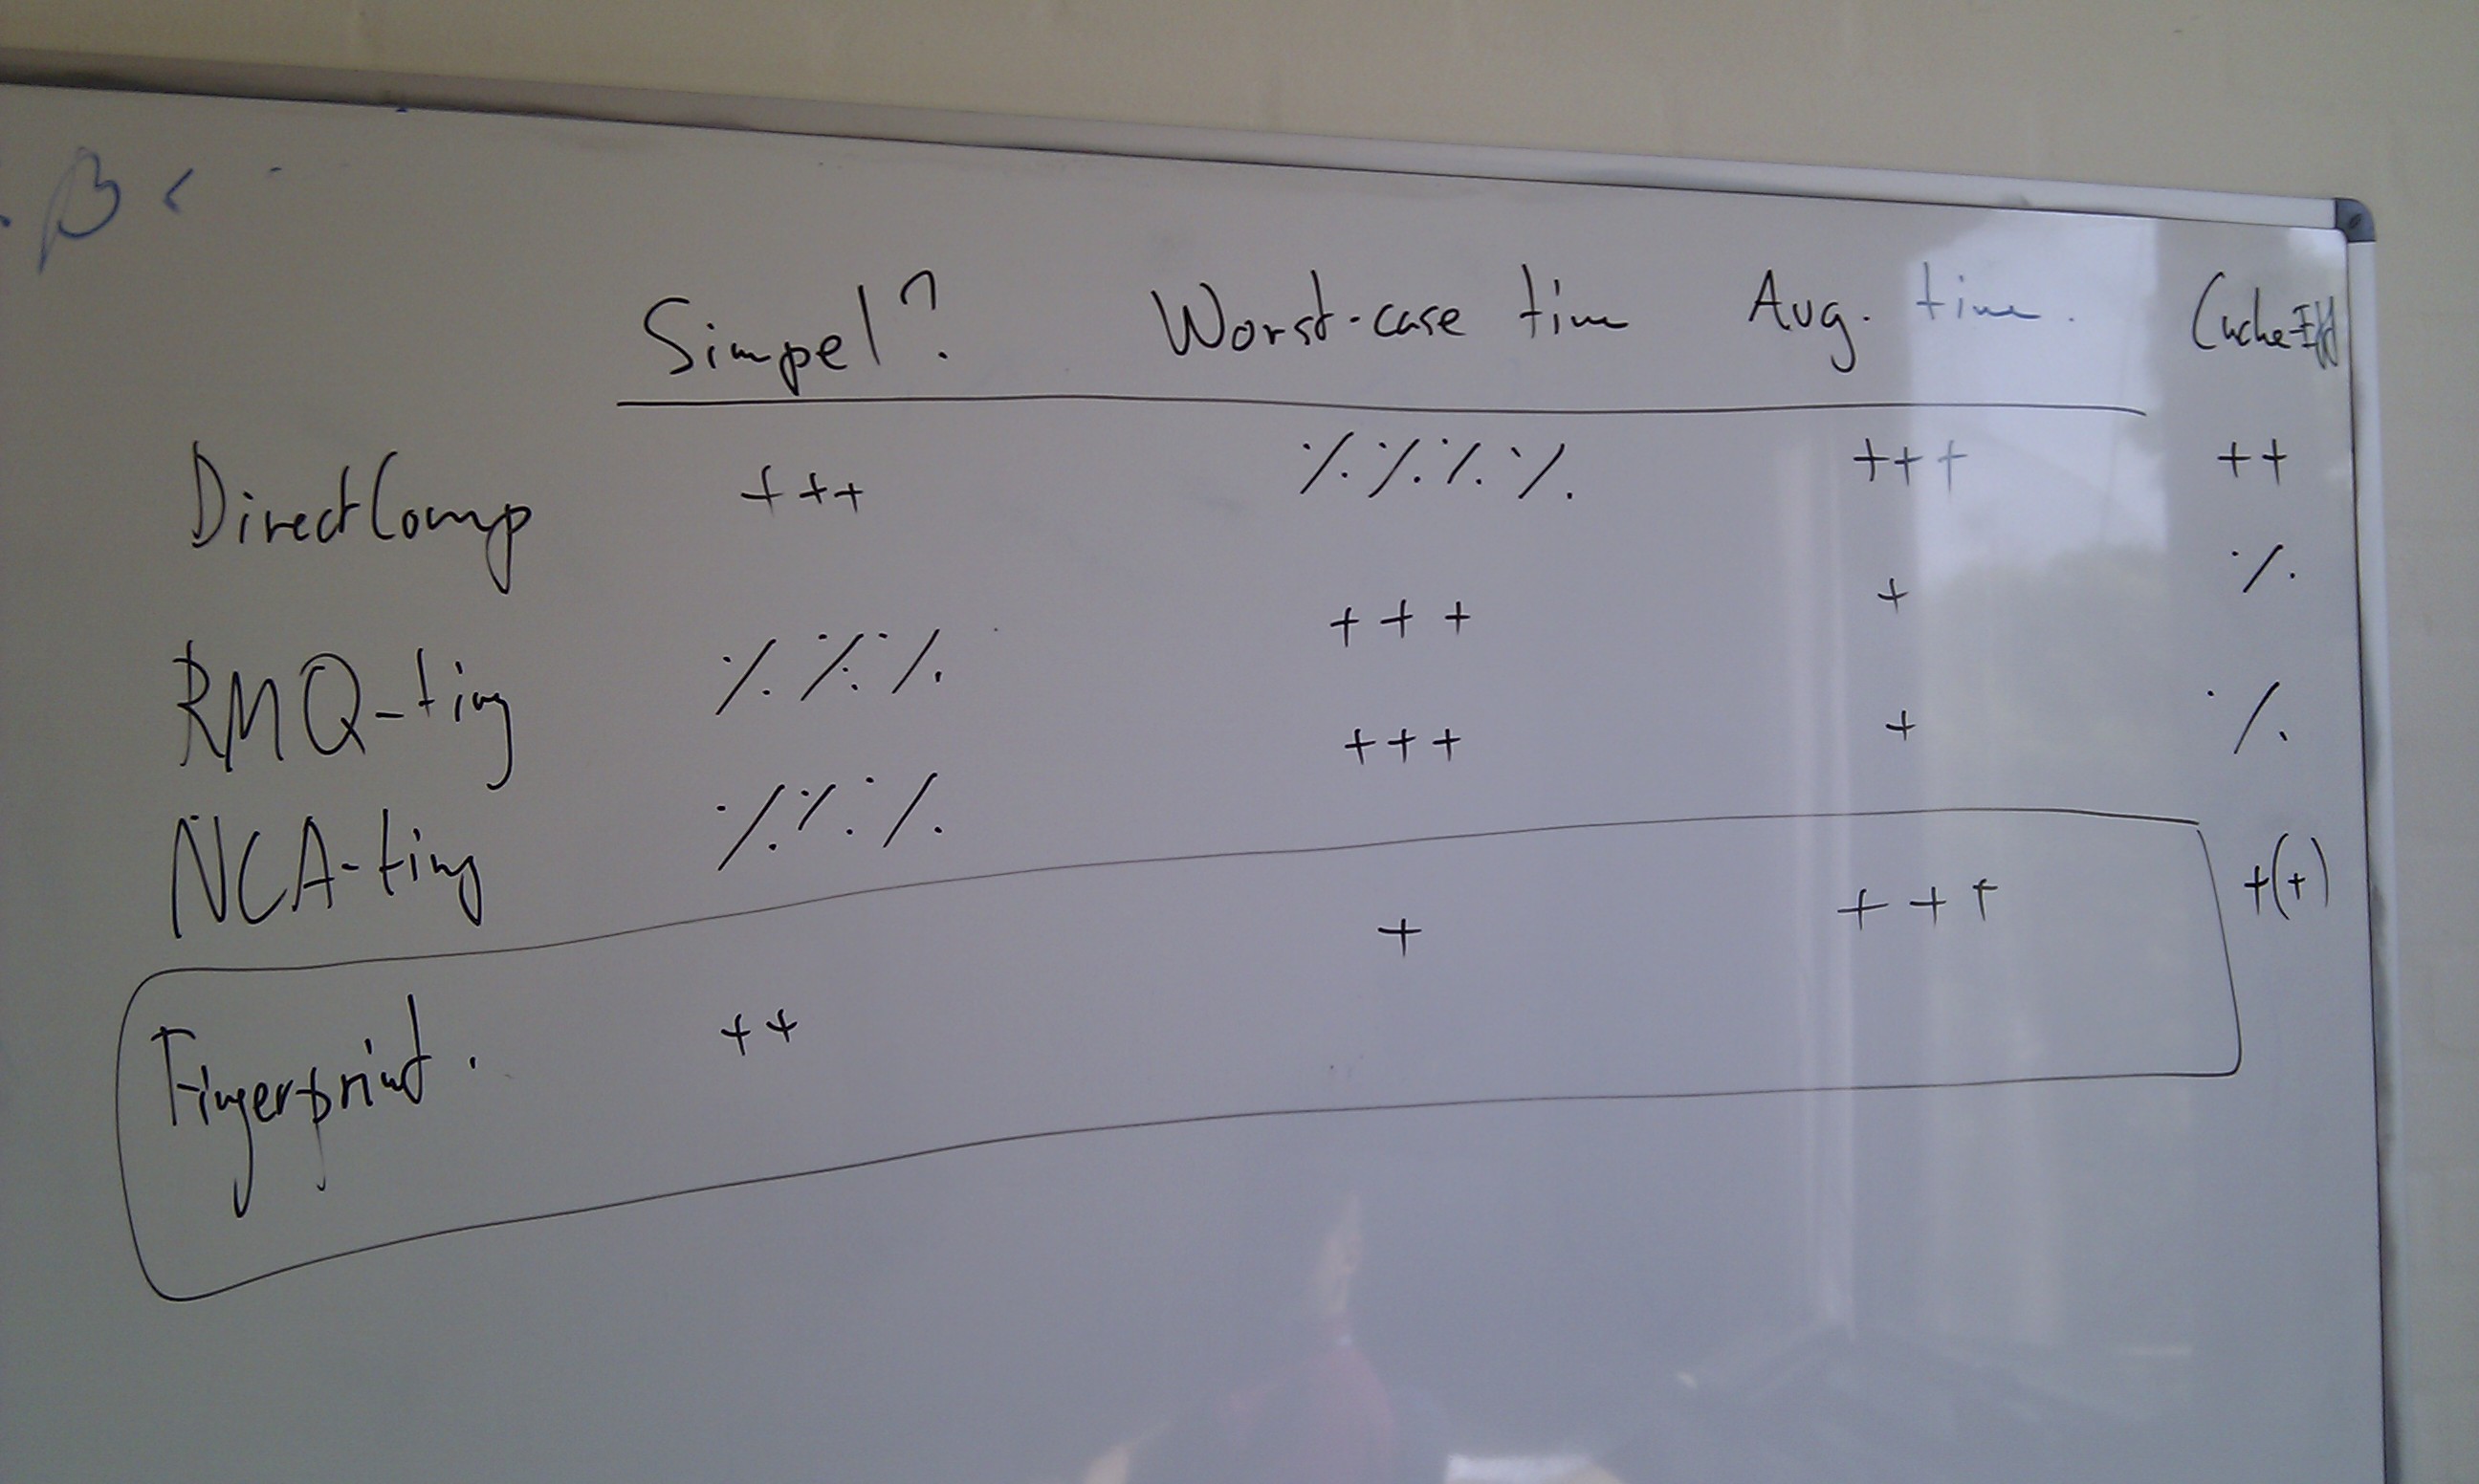 β <
Simpel? Worst-case time Avg. time. Cache-Eff
DirectComp +++ ⁒ ⁒ ⁒ ⁒ +++ ++
RMQ-ting ⁒ ⁒ ⁒ +++ + ⁒
NCA-ting ⁒ ⁒ ⁒ +++ + ⁒
Fingerprint. ++ + +++ +(+)